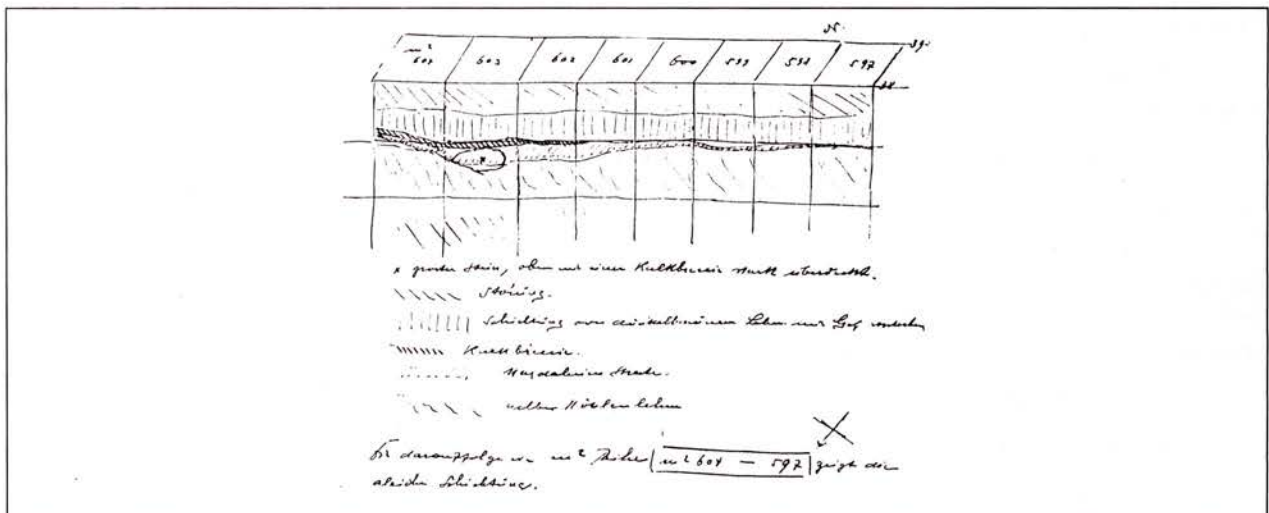 N.
39.
m² 604 603 602 601 600 599 598 597
38
x
x großer Stein, oben mit einer Kalkbreccie stark überdeckt.
Störung.
Schichtung von dunkelbraunem Lehm mit
Kalkbreccie.
Magdalenien Strate.
gelber Höhlenlehm
Die darauffolgende m² Reihe m² 604 — 597 zeigt die
gleiche Schichtung.